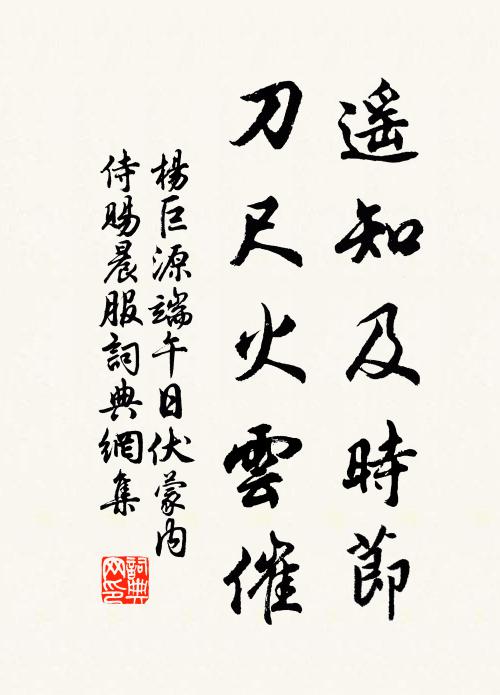 遥知及時節
刀尺火雲催
楊巨源端午日伏蒙内
侍賜晨服詞典網集
詞典网印